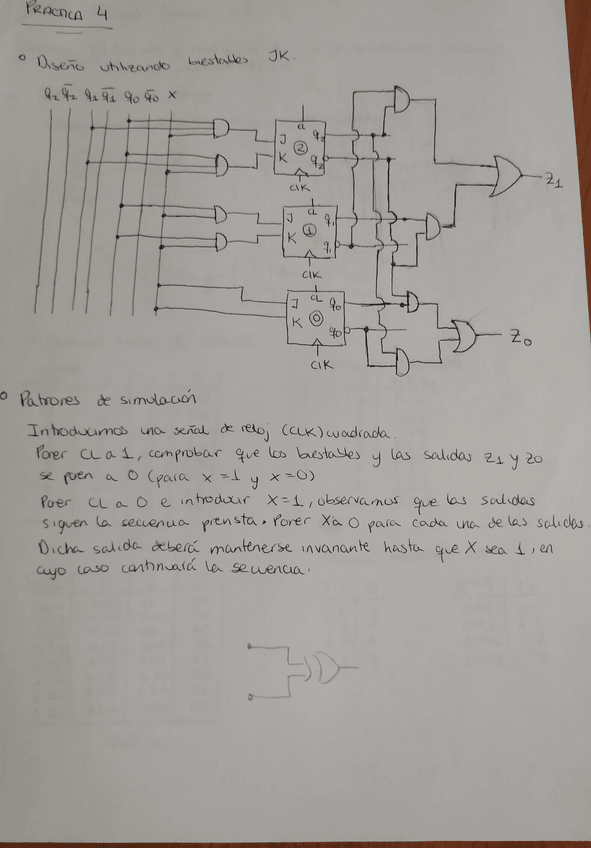 PRÁCTICA 4
Diseño utilizando biestables JK.
q2 q̅2 q1 q̅1 q0 q̅0 x
J CL q2
K 2 q̅2
CLK
J CL q1
K 1 q̅1
CLK
J CL q0
K 0 q̅0
CLK
Z1
Z0
Patrones de simulación
Introducimos una señal de reloj (CLK) cuadrada.
Poner CL a 1, comprobar que los biestables y las salidas z1 y z0
se poen a 0 (para x=1 y x=0)
Poer CL a 0 e introducir x=1, observamos que las salidas
siguen la secuencia prevista. Poner X a 0 para cada una de las salidas.
Dicha salida deberá mantenerse invariante hasta que X sea 1, en
cuyo caso continuará la secuencia.